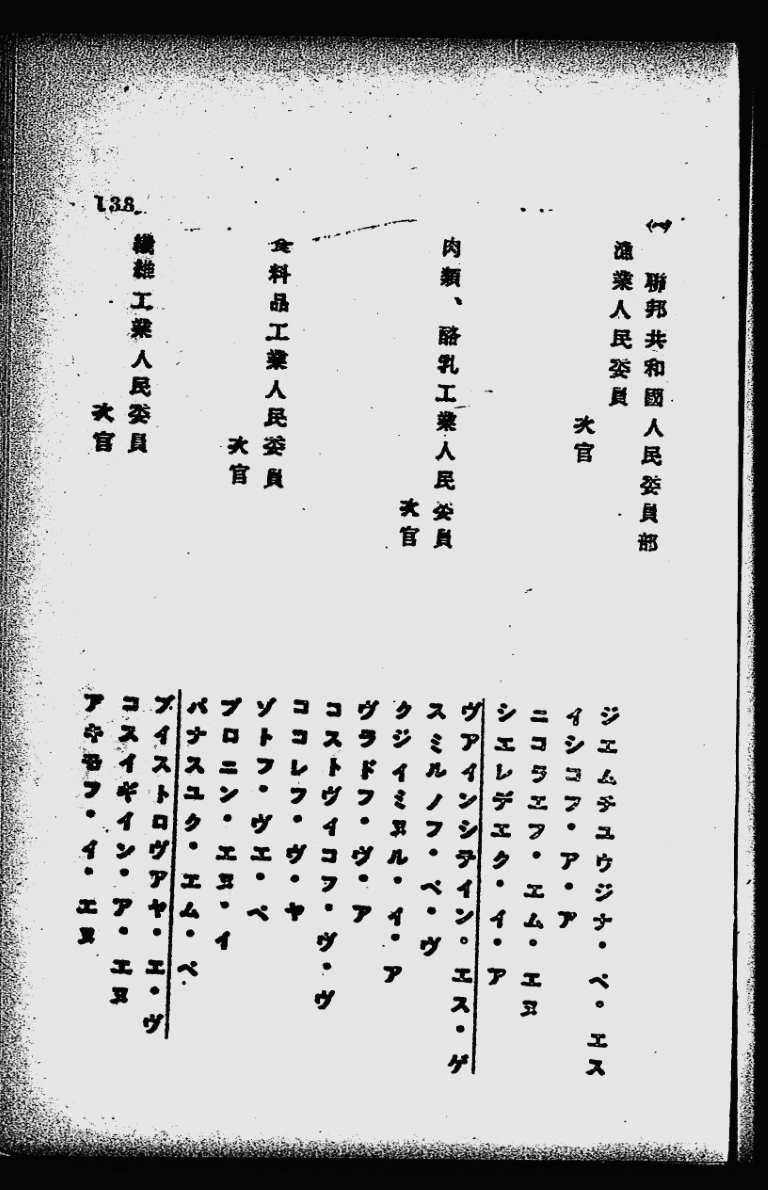 (一) 聯邦共和國人民委員部
漁業人民委員
次官
肉類、酪乳工業人民委員
次官
食料品工業人民委員
次官
纖維工業人民委員
次官
ジエムチユウジナ・ペ・エス
イシコフ・ア・ア
ニコラエフ・エム・エヌ
シエレデエク・イ・ア
ヴアインシテイン・エス・ゲ
スミルノフ・ペ・ヴ
クジイミヌル・イ・ア
ヴラドフ・ヴ・ア
コストヴイコフ・ヴ・ヴ
ココレフ・ヴ・ヤ
ゾトフ・ヴエ・ペ
プロニン・エヌ・イ
パナスユク・エム・ペ
ブイストロヴアヤ・エ・ヴ
コスイギイン・ア・エヌ
アキモフ・イ・エヌ
138